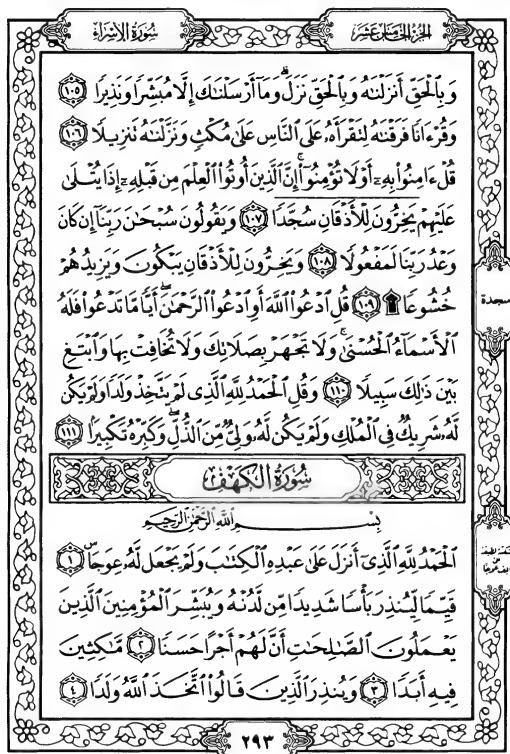 سُورَةُ الإِسْرَاءِ
الجُزْءُ الخَامِسَ عَشَرَ
وَبِٱلْحَقِّ أَنزَلْنَٰهُ وَبِٱلْحَقِّ نَزَلَۗ وَمَآ أَرْسَلْنَٰكَ إِلَّا مُبَشِّرًا وَنَذِيرًا ١٠٥
وَقُرْءَانًا فَرَقْنَٰهُ لِتَقْرَأَهُۥ عَلَى ٱلنَّاسِ عَلَىٰ مُكْثٍ وَنَزَّلْنَٰهُ تَنزِيلًا ١٠٦
قُلْ ءَامِنُوا۟ بِهِۦٓ أَوْ لَا تُؤْمِنُوٓا۟ۚ إِنَّ ٱلَّذِينَ أُوتُوا۟ ٱلْعِلْمَ مِن قَبْلِهِۦٓ إِذَا يُتْلَىٰ
عَلَيْهِمْ يَخِرُّونَ لِلْأَذْقَانِ سُجَّدًا ١٠٧ وَيَقُولُونَ سُبْحَٰنَ رَبِّنَآ إِن كَانَ
وَعْدُ رَبِّنَا لَمَفْعُولًا ١٠٨ وَيَخِرُّونَ لِلْأَذْقَانِ يَبْكُونَ وَيَزِيدُهُمْ
خُشُوعًا ۩ ١٠٩ قُلِ ٱدْعُوا۟ ٱللَّهَ أَوِ ٱدْعُوا۟ ٱلرَّحْمَٰنَۖ أَيًّا مَّا تَدْعُوا۟ فَلَهُ
سجدة
ٱلْأَسْمَآءُ ٱلْحُسْنَىٰۚ وَلَا تَجْهَرْ بِصَلَاتِكَ وَلَا تُخَافِتْ بِهَا وَٱبْتَغِ
بَيْنَ ذَٰلِكَ سَبِيلًا ١١٠ وَقُلِ ٱلْحَمْدُ لِلَّهِ ٱلَّذِى لَمْ يَتَّخِذْ وَلَدًا وَلَمْ يَكُن
لَّهُۥ شَرِيكٌ فِى ٱلْمُلْكِ وَلَمْ يَكُن لَّهُۥ وَلِىٌّ مِّنَ ٱلذُّلِّۖ وَكَبِّرْهُ تَكْبِيرًۢا ١١١
سُورَةُ الكَهْفِ
بِسْمِ ٱللَّهِ ٱلرَّحْمَٰنِ ٱلرَّحِيمِ
ٱلْحَمْدُ لِلَّهِ ٱلَّذِىٓ أَنزَلَ عَلَىٰ عَبْدِهِ ٱلْكِتَٰبَ وَلَمْ يَجْعَل لَّهُۥ عِوَجَاۜ ١
قَيِّمًا لِّيُنذِرَ بَأْسًا شَدِيدًا مِّن لَّدُنْهُ وَيُبَشِّرَ ٱلْمُؤْمِنِينَ ٱلَّذِينَ
يَعْمَلُونَ ٱلصَّٰلِحَٰتِ أَنَّ لَهُمْ أَجْرًا حَسَنًا ٢ مَّٰكِثِينَ
فِيهِ أَبَدًا ٣ وَيُنذِرَ ٱلَّذِينَ قَالُوا۟ ٱتَّخَذَ ٱللَّهُ وَلَدًا ٤
٢٩٣